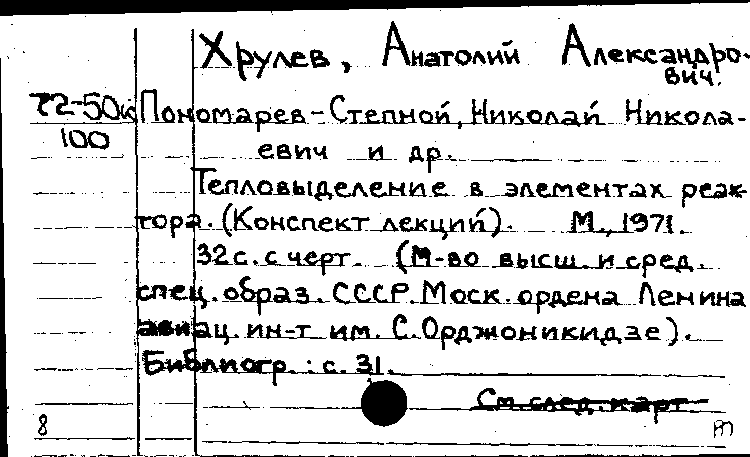 Хрулев, Анатолий Александро-
вич.
72-50к Пономарев-Степной, Николай Никола-
100 евич и др.
Тепловыделение в элементах реак-
тора. (Конспект лекций). М., 1971.
32с. с черт. (М-во высш. и сред.
спец. образ. СССР. Моск. ордена Ленина
авиац. ин-т им. С. Орджоникидзе).
Библиогр.: с. 31.
См. след. карт.
8